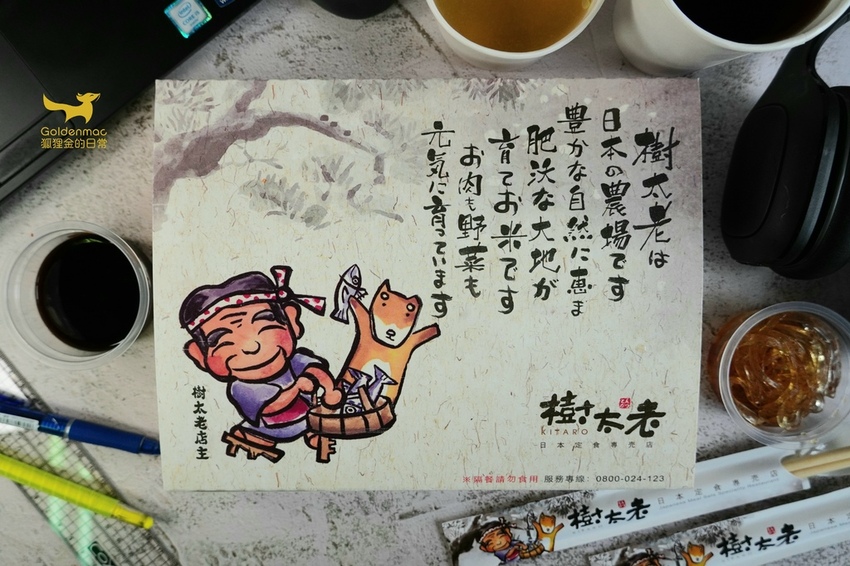 Goldenmac
狐狸金的日常
樹太老は
日本の農場です
豊かな自然に恵ま
肥沃な大地が
育てお米です
お肉も野菜も
元気に育っています
樹太老店主
樹太老
KITARO
日本定食專売店
未隔餐請勿食用 服務專線：0800-024-123
樹太老
日本定食專売店
樹太老